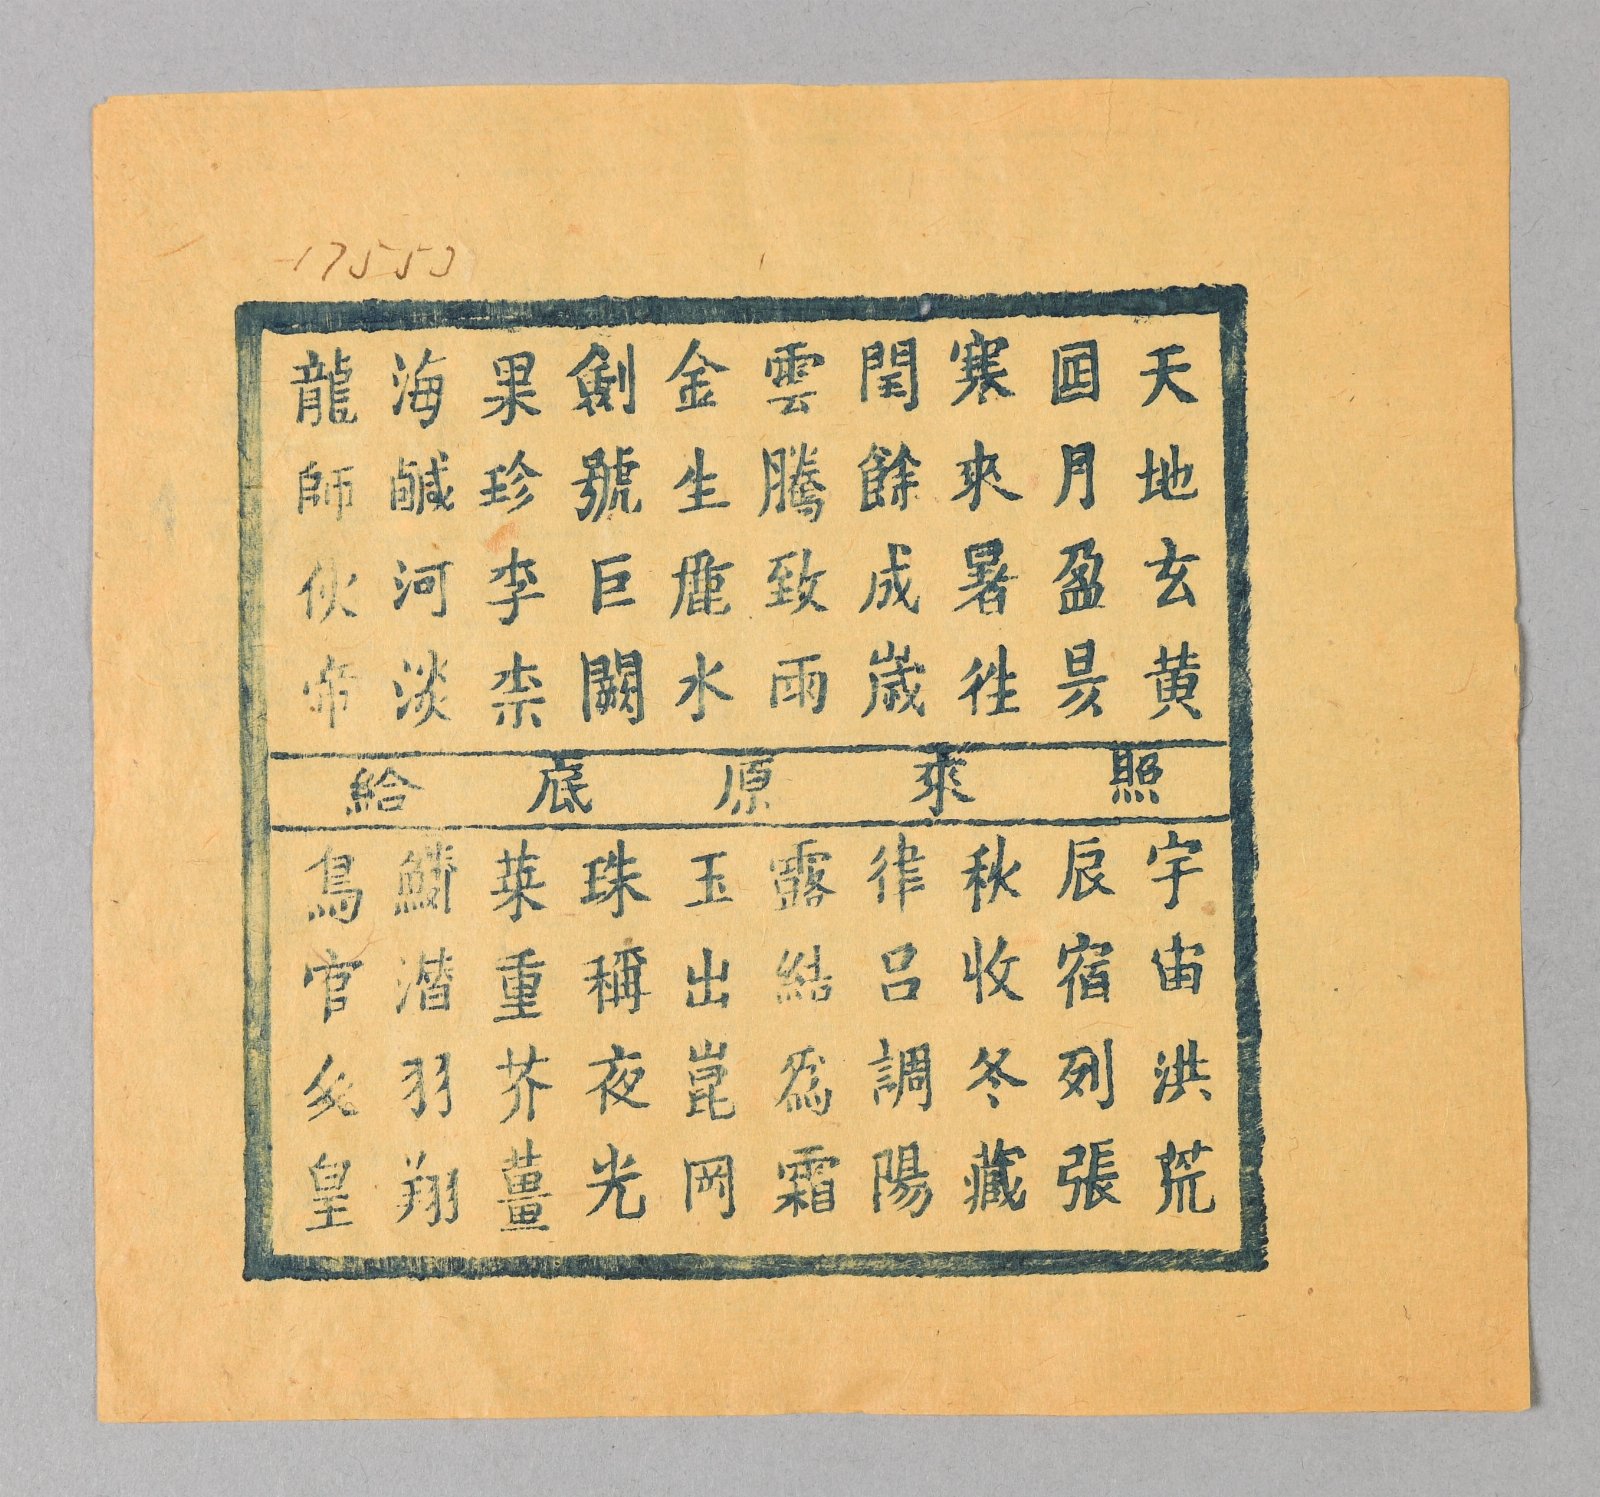 17550
天地玄黄
囸月盈昃
寒來暑徃
閏餘成歲
雲騰致雨
金生麗水
劍號巨闕
果珍李柰
海鹹河淡
龍師伙帝
照來原底給
宇宙洪荒
辰宿列張
秋收冬藏
律呂調陽
露結為霜
玉出崑岡
珠稱夜光
菜重芥薑
鱗潛羽翔
鳥官人皇